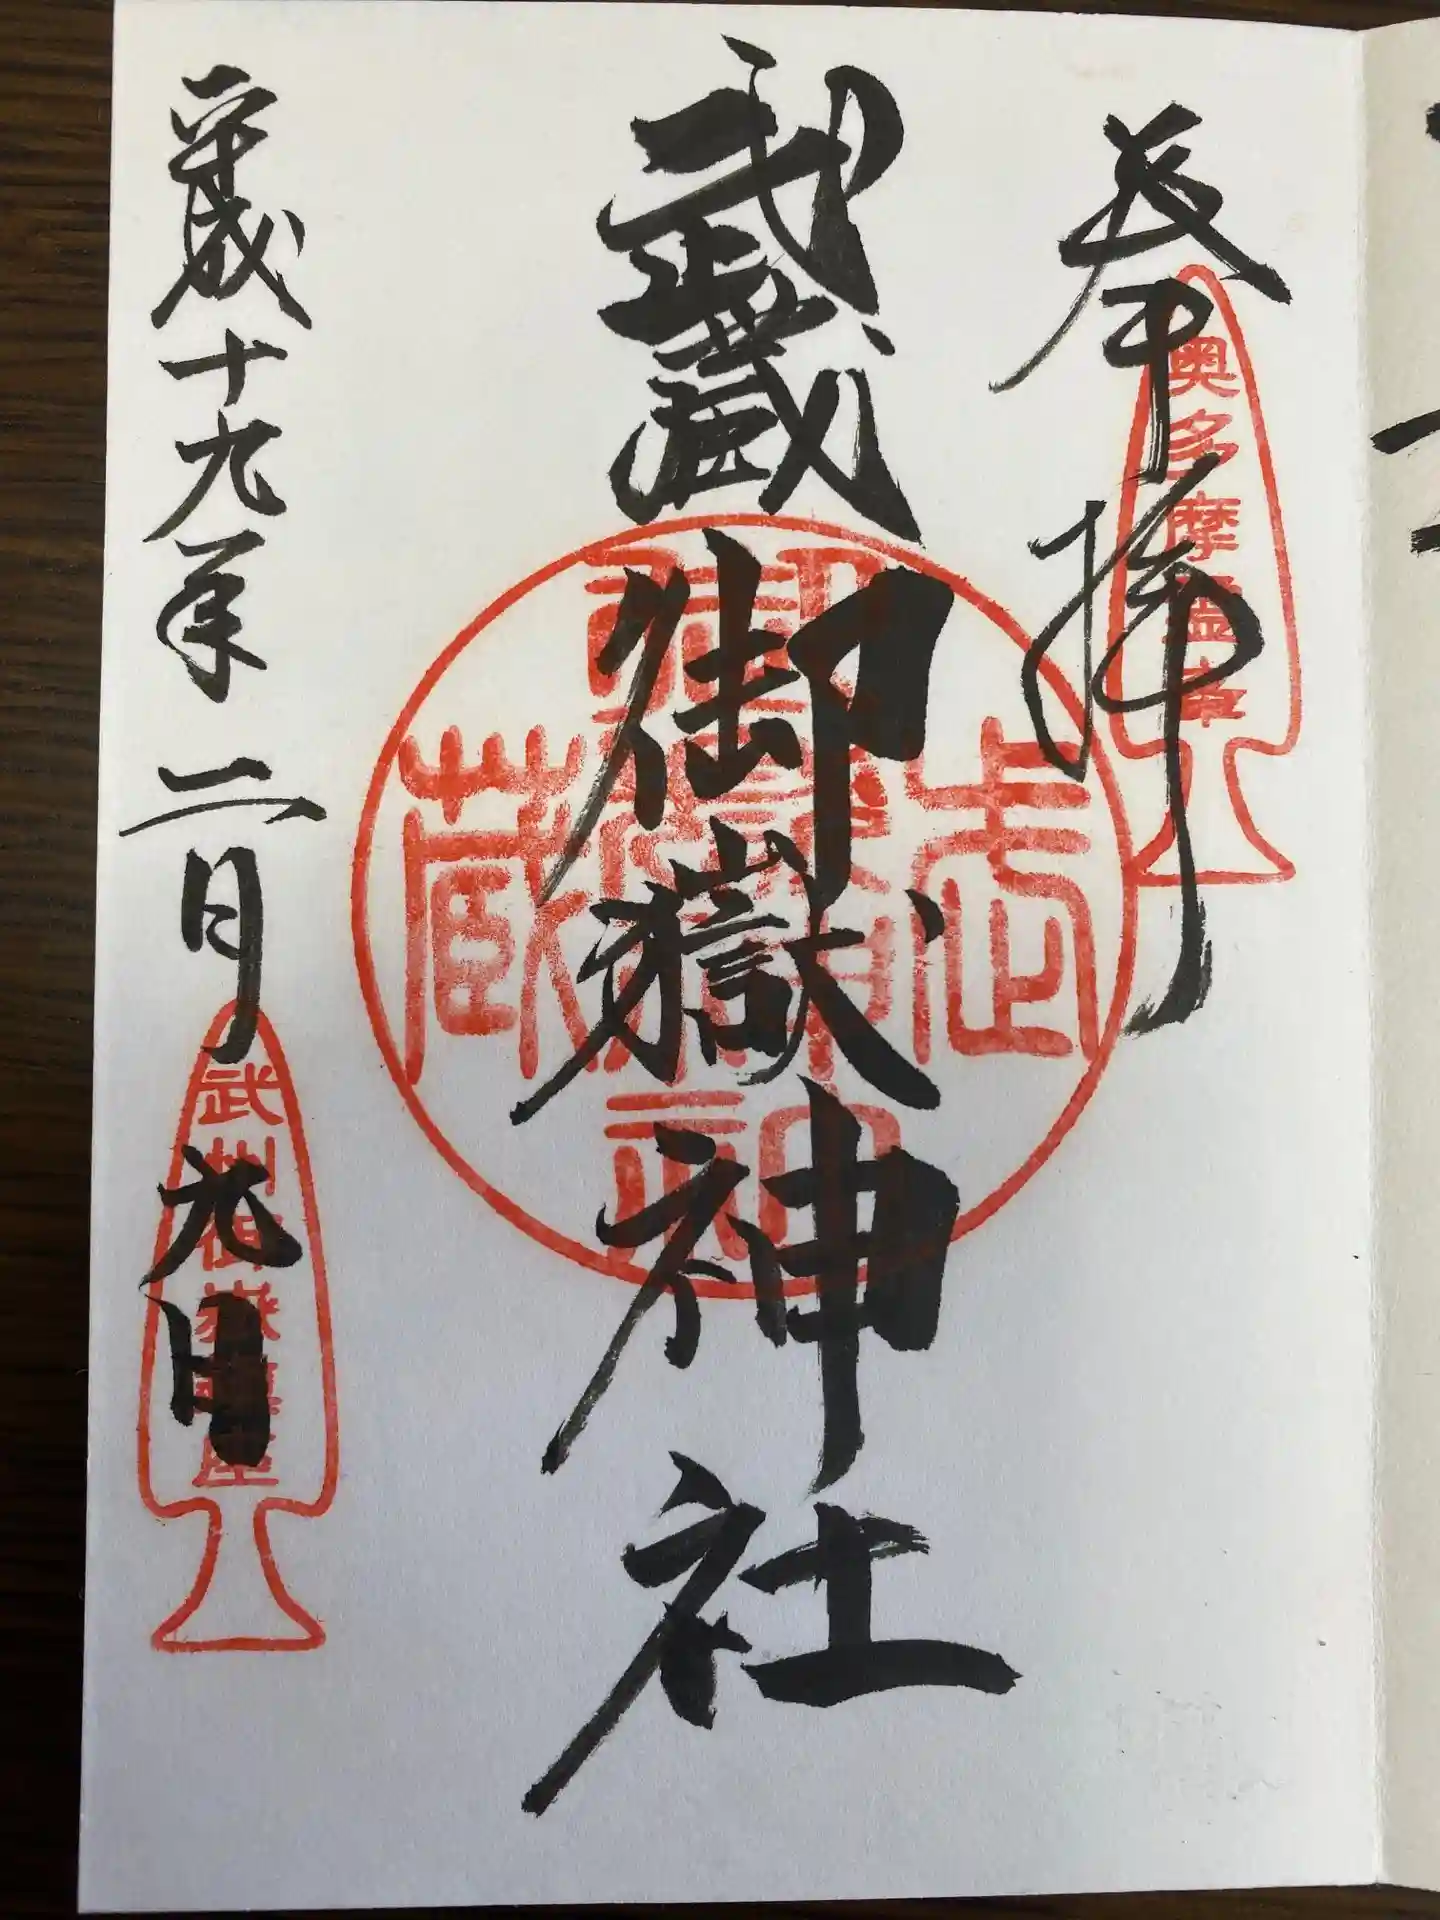 奉拝
奥多摩霊峯
武蔵御嶽神社
武蔵
平成十九年二月九日
武州御嶽
座